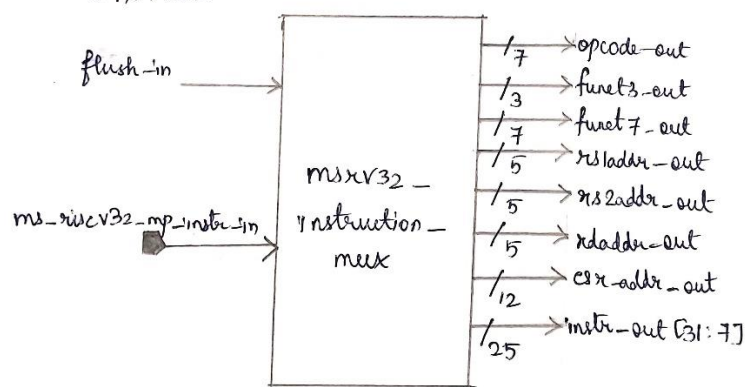 flush_in
ms_riscv32_mp_instr_in
msrv32_
instruction_
mux
7 opcode_out
3 funct3_out
7 funct7_out
5 rs1addr_out
5 rs2addr_out
5 rdaddr_out
12 csr_addr_out
25 instr_out [31:7]